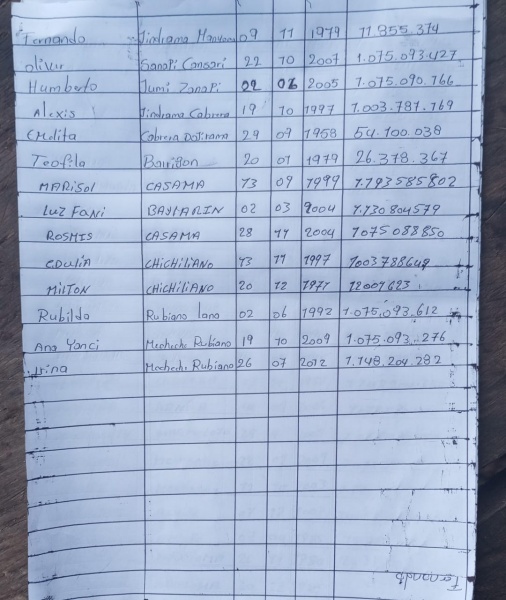 Fernando Jindrama Manyoma 09 11 1979 11.855.374
oliver Sanapi Cansari 22 10 2007 1.075.093.427
Humberto Jumi Zanapi 02 06 2005 1.075.090.766
Alexis Jindrama Cabrera 19 10 1997 1.003.781.769
CMelita Cabrera 29 09 1958 54.100.038
Teofila Barrigon 20 01 1979 26.378.367
MARISOL CASAMA 13 09 1999 1.193585802
LUZ FANI BAYMARIN 02 03 2004 1.130804579
ROSMIS CASAMA 28 11 2004 1075088850
EDULIA CHICHILIANO 13 11 1997 1003788649
MILTON CHICHILIANO 20 12 1977 12001623
Rubilda Rubiano Lana 02 06 1992 1.075.093.612
Ana Yanci Mecheche Rubiano 19 10 2009 1.075.093.276
Irina Mecheche Rubiano 26 07 2012 1.148.204.282
Fernando